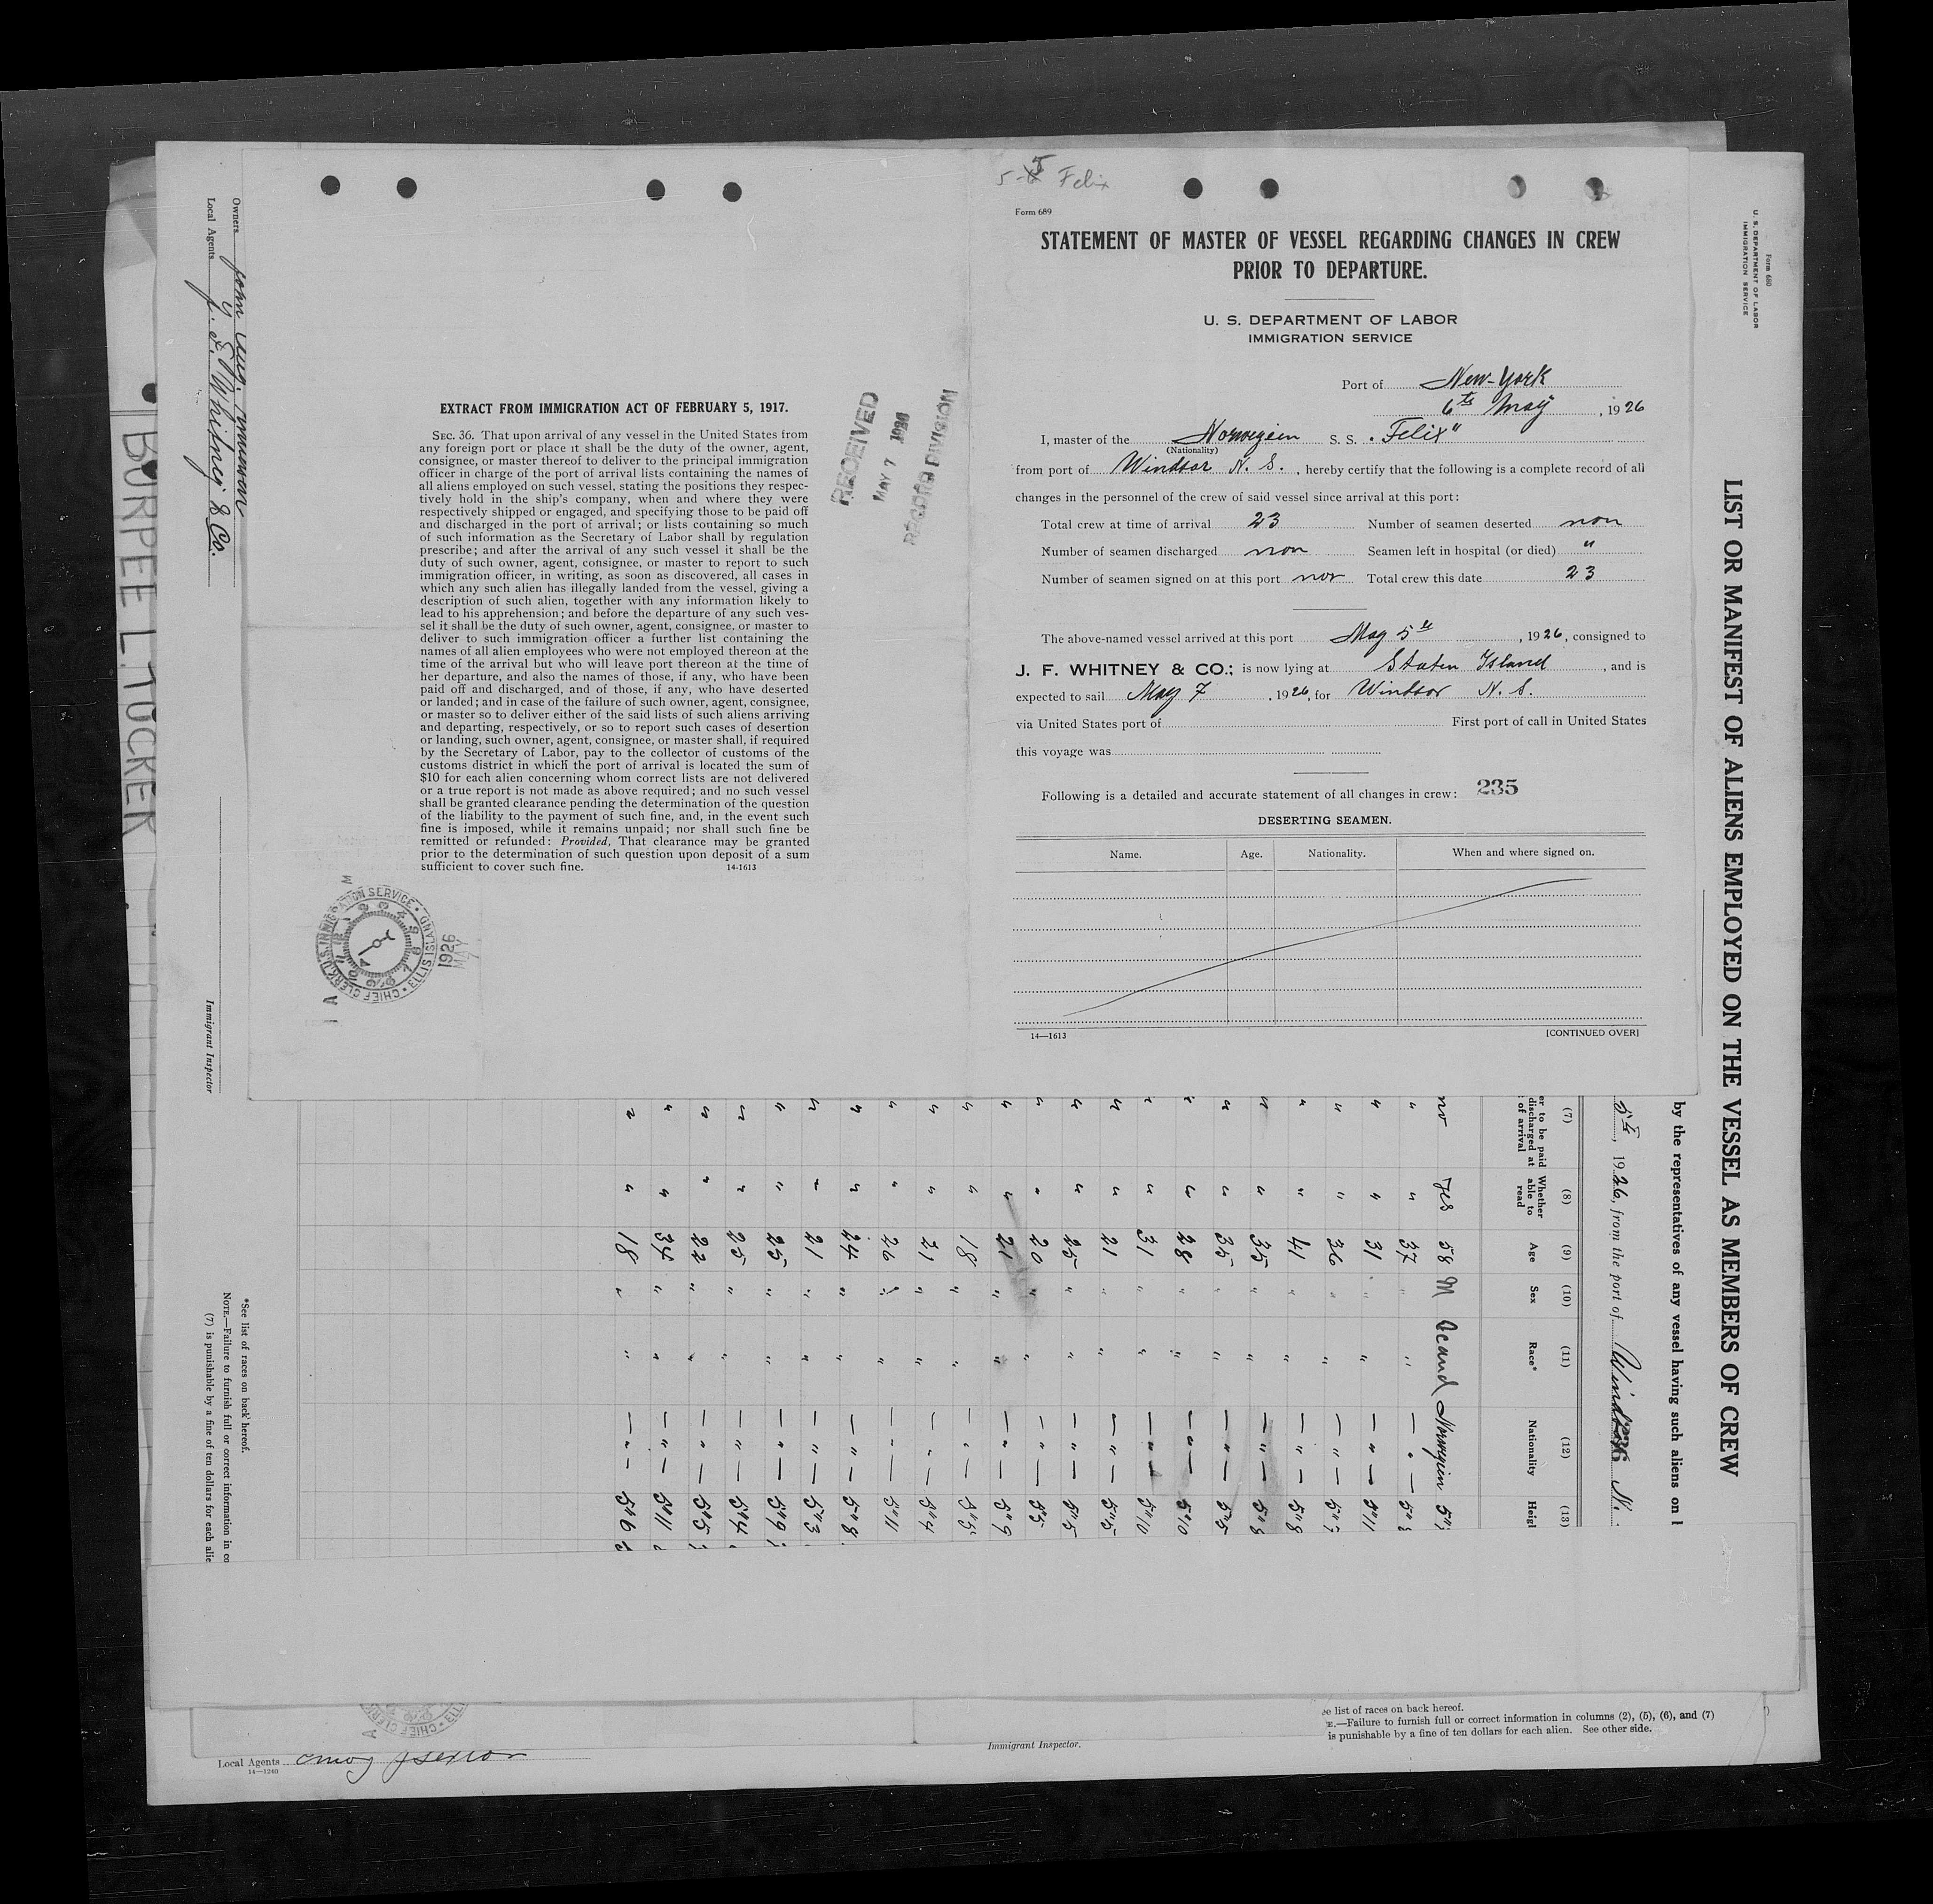 5-5 Felix
Form 689
STATEMENT OF MASTER OF VESSEL REGARDING CHANGES IN CREW
PRIOR TO DEPARTURE.
U. S. DEPARTMENT OF LABOR
IMMIGRATION SERVICE
Port of New-York
6th May, 1926
I, master of the Norwegien S. S. "Felix"
(Nationality)
from port of Windsor N. S., hereby certify that the following is a complete record of all
changes in the personnel of the crew of said vessel since arrival at this port:
Total crew at time of arrival 23 Number of seamen deserted non
Number of seamen discharged non Seamen left in hospital (or died) "
Number of seamen signed on at this port non Total crew this date 23
The above-named vessel arrived at this port May 5th, 1926, consigned to
J. F. WHITNEY & CO.; is now lying at Staten Island, and is
expected to sail May 7, 1926, for Windsor N. S.
via United States port of First port of call in United States
this voyage was
Following is a detailed and accurate statement of all changes in crew: 235
DESERTING SEAMEN.
Name. Age. Nationality. When and where signed on.
14—1613 [CONTINUED OVER]
EXTRACT FROM IMMIGRATION ACT OF FEBRUARY 5, 1917.
SEC. 36. That upon arrival of any vessel in the United States from
any foreign port or place it shall be the duty of the owner, agent,
consignee, or master thereof to deliver to the principal immigration
officer in charge of the port of arrival lists containing the names of
all aliens employed on such vessel, stating the positions they respec-
tively hold in the ship's company, when and where they were
respectively shipped or engaged, and specifying those to be paid off
and discharged in the port of arrival; or lists containing so much
of such information as the Secretary of Labor shall by regulation
prescribe; and after the arrival of any such vessel it shall be the
duty of such owner, agent, consignee, or master to report to such
immigration officer, in writing, as soon as discovered, all cases in
which any such alien has illegally landed from the vessel, giving a
description of such alien, together with any information likely to
lead to his apprehension; and before the departure of any such ves-
sel it shall be the duty of such owner, agent, consignee, or master to
deliver to such immigration officer a further list containing the
names of all alien employees who were not employed thereon at the
time of the arrival but who will leave port thereon at the time of
her departure, and also the names of those, if any, who have been
paid off and discharged, and of those, if any, who have deserted
or landed; and in case of the failure of such owner, agent, consignee,
or master so to deliver either of the said lists of such aliens arriving
and departing, respectively, or so to report such cases of desertion
or landing, such owner, agent, consignee, or master shall, if required
by the Secretary of Labor, pay to the collector of customs of the
customs district in which the port of arrival is located the sum of
$10 for each alien concerning whom correct lists are not delivered
or a true report is not made as above required; and no such vessel
shall be granted clearance pending the determination of the question
of the liability to the payment of such fine, and, in the event such
fine is imposed, while it remains unpaid; nor shall such fine be
remitted or refunded: Provided, That clearance may be granted
prior to the determination of such question upon deposit of a sum
sufficient to cover such fine. 14-1613
RECEIVED
MAY 7 1926
RECORD DIVISION
U.S. IMMIGRATION SERVICE
CHIEF CLERK ELLIS ISLAND
1926
MAY
7
Form 680
U. S. DEPARTMENT OF LABOR
IMMIGRATION SERVICE
LIST OR MANIFEST OF ALIENS EMPLOYED ON THE VESSEL AS MEMBERS OF CREW
by the representatives of any vessel having such aliens on
5th, 1926, from the port of Windsor N.
(7) (8) (9) (10) (11) (12) (13)
er to be paid
discharged at
of arrival
Whether
able to
read
Age Sex Race* Nationality Heig
no yes 58 M Scand Norwegien
" " 37 " " — " —
" " 31 " " — " — 5"11
" " 36 " " — " —
" " 41 " " — " — 5"8
" " 35 " " — " — 5"8
" " 35 " " — " — 5"5
" " 28 " " — " — 5"10
" " 31 " " — " — 5"10
" " 21 " " — " — 5"5
" " 25 " " — " — 5"5
" " 20 " " — " — 5"5
" " 21 " " — " — 5"9
" " 18 " " — " — 5"5
" " 21 " " — " — 5"4
" " 26 " " — " — 5"11
" " 24 " " — " — 5"8
" " 21 " " — " — 5"3
" " 25 " " — " — 5"9
" " 25 " " — " — 5"4
" " 22 " " — " — 5"5
" " 34 " " — " — 5"11
" " 18 " " — " — 5"6
*See list of races on back hereof.
NOTE.—Failure to furnish full or correct information in co
(7) is punishable by a fine of ten dollars for each alie
Owners John
Local Agents J. F. Whitney & Co.
Immigrant Inspector
BURPEE L. TUCKER
ee list of races on back hereof.
E.—Failure to furnish full or correct information in columns (2), (5), (6), and (7)
is punishable by a fine of ten dollars for each alien. See other side.
Immigrant Inspector.
Local Agents
14—1240